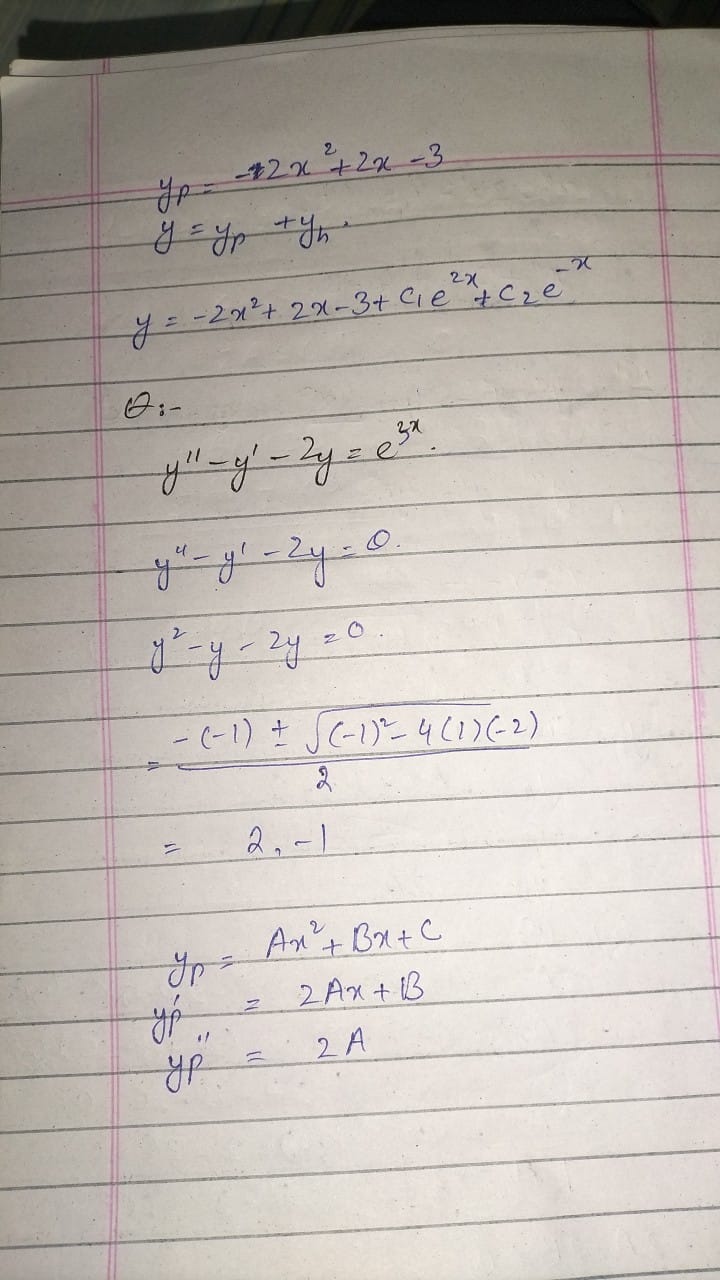 yp = -2x² + 2x - 3
y = yp + yh.
y = -2x² + 2x - 3 + C₁e^2x + C₂e^-x
Q:-
y'' - y' - 2y = e^3x.
y'' - y' - 2y = 0.
y² - y - 2y = 0.
= -(-1) ± √(-1)² - 4(1)(-2) / 2
= 2, -1
yp = Ax² + Bx + C
yp' = 2Ax + B
yp'' = 2A